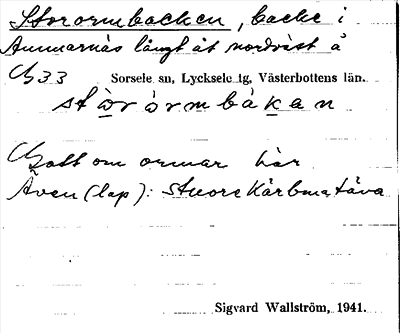 Storormbacken, backe i
Ammarnäs långt åt nordväst å
33 Sorsele sn, Lycksele tg, Västerbottens län.
stòr òrmbàkan
Gott om ormar här
Även (lap): stuore kärbmatäva
Sigvard Wallström, 1941.